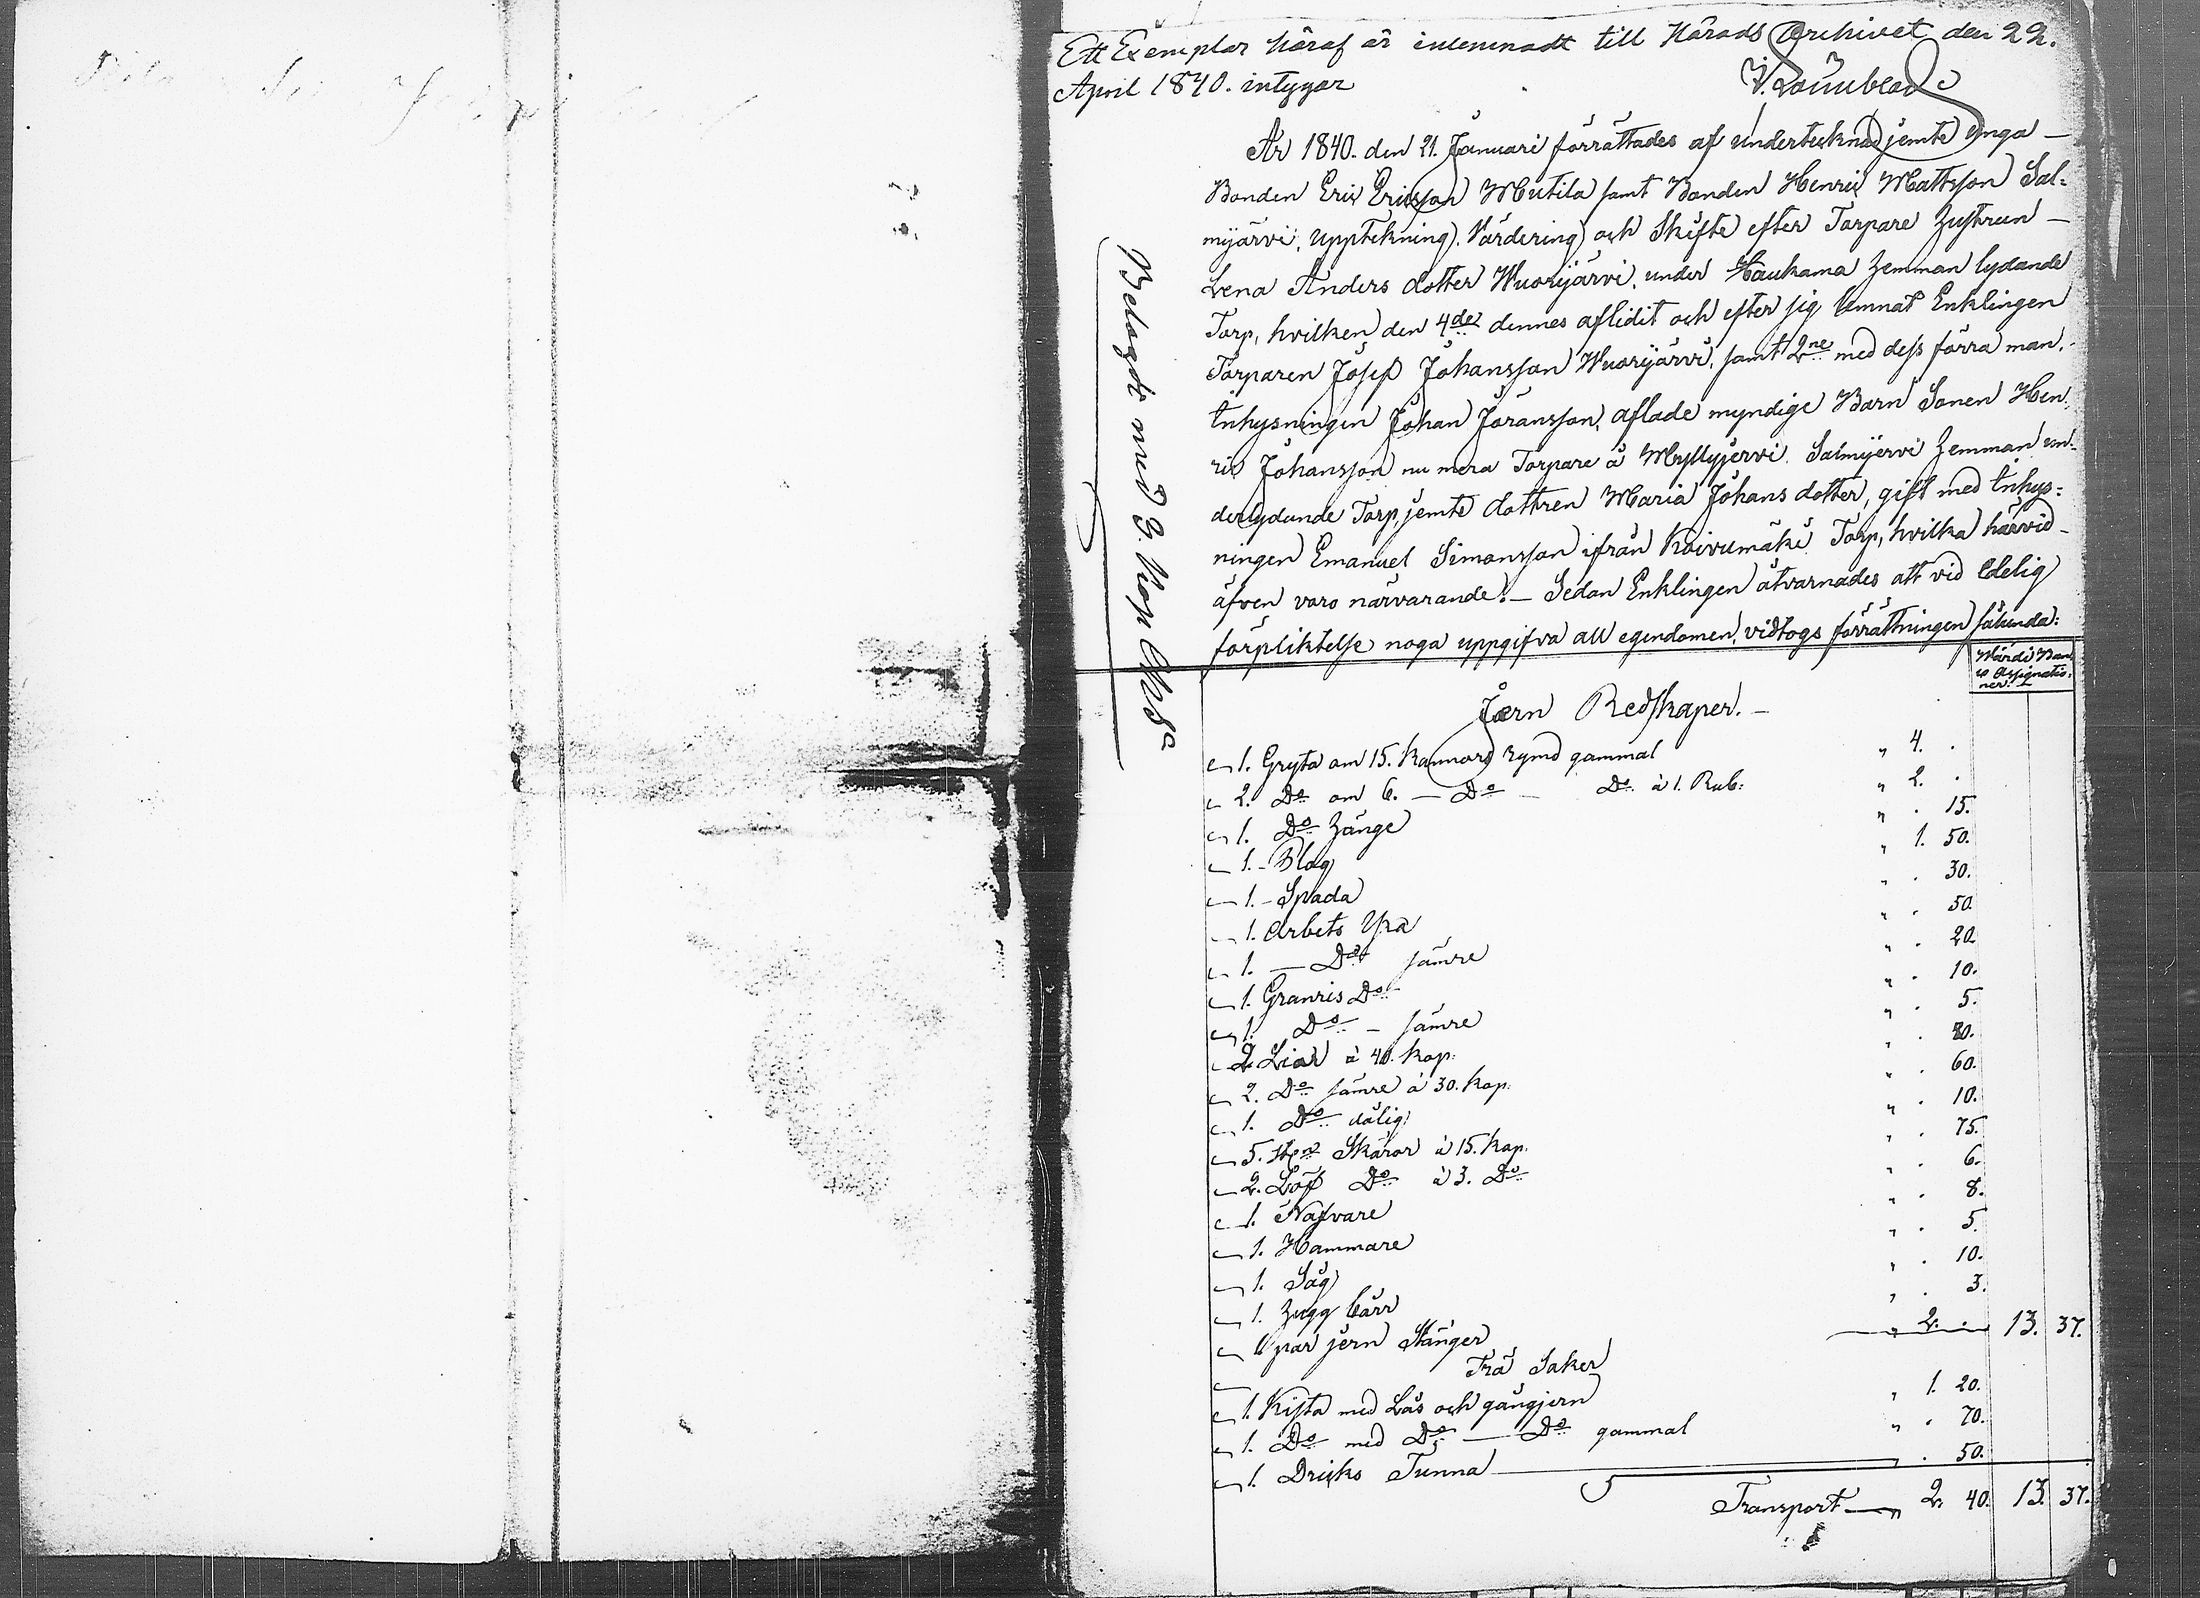 Ett Exemplar häraf är inlemnadt till Härads Archivet den 22.
April 1840. intygar
Belagdt med 3. Kop. Ch. Sa
År 1840. den 21. Januari förrättades af undertecknad jemte unga
Bonden Eric Ericsson Mutila samt Bonden Henric Mattsson Sal-
myärvi, uppteckning, Värdering och Skifte efter Torpare Hustrun
Lena Anders dotter Wuorijärvi, under Haukama Hemman lydande
Torp, hvilken den 4de dennes aflidit och efter sig lemnat Enklingen
Torparen Josef Johansson Wuorijärvi, samt 2ne med dess förra man,
Inhysningen Johan Jöransson, aflade myndige Barn Sonen Hen-
ric Johansson nu mera Torpare å Myllyjervi Salmijervi Hemman un-
derlydande Torp, jemte dottren Maria Johans dotter, gift med Inhys-
ningen Emanuel Simonsson ifrån Koivumäki Torp, hvilka härvid
äfven voro närvarande. — Sedan Enklingen åtvarnades att vid Edelig
förpliktelse noga uppgifva all egendomen, vidtogs förrättningen sålunda:
Wärdi Ban-
co Assignatio-
ner.
Jern Redskaper. —
1. Gryta om 15. Kannors rymd gammal " 4. .
2. Do om 6. — Do — Do à 1. Rub: " 2. .
1. Do Hänge " . 15.
1. Plog " 1. 50.
1. Spada " . 30.
1. Arbets Yxa " . 50.
1. — Do sämre " . 20.
1. Granris Do " . 10.
1. Do — sämre " . 5.
2. Liar à 40. kop: " . 80.
2. Do sämre à 30. kop: " . 60.
1. Do dålig " . 10.
5. st. Skäror à 15. kop. " . 75.
2. Löf Do à 3. Do " . 6.
1. Nafvare " . 8.
1. Hammare " . 5.
1. Såg " . 10.
1. Hugg Järn " . 3.
1 par jern Stänger " 2. . 13. 37.
Trä Saker
1. Kista med Lås och gångjern " 1. 20.
1. Do med Do — Do gammal " . 70.
1. Dricks Tunna " . 50.
Transport — " 2. 40. 13. 37.